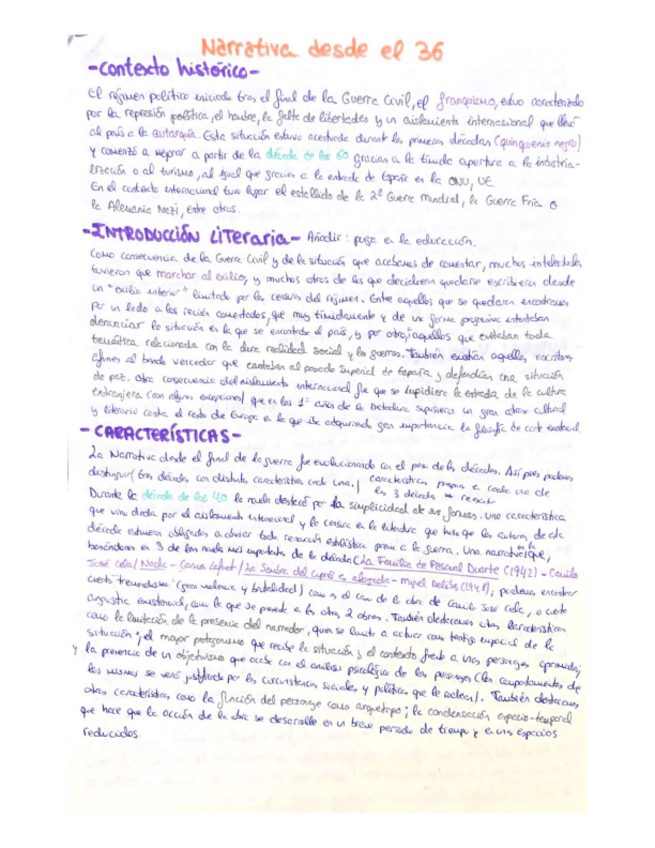 Narrativa desde el 36
-contexto histórico-
El régimen político iniciado tras el final de la Guerra Civil, el franquismo, estuvo caracterizado
por la represión política, el hambre, la falta de libertades y un aislamiento internacional que llevó
al país a la autarquía. Esta situación estuvo acentuada durante las primeras décadas (quinquenio negro)
y comenzó a mejorar a partir de la década de los 60 gracias a la tímida apertura a la industria-
lización o al turismo, al igual que gracias a la entrada de España en la ONU, UE.
En el contexto internacional tuvo lugar el estallido de la 2ª Guerra Mundial, la Guerra Fría o
la Alemania Nazi, entre otras.
-INTRODUCCIÓN LITeraria- Añadir: purga en la educación.
Como consecuencia de la Guerra Civil y de la situación que acabamos de comentar, muchos intelectuales
tuvieron que marchar al exilio, y muchos otros de los que decidieron quedarse escribieron desde
un "exilio interior" limitado por la censura del régimen. Entre aquellos que se quedaron encontramos
por un lado a los recién comentados, que muy tímidamente y de una forma progresiva intentaban
denunciar la situación en la que se encontraba el país, y por otro, aquellos que evitaban toda
temática relacionada con la dura realidad social y la guerra. También existían aquellos escritores
afines al bando vencedor que cantaban al pasado Imperial de España y defendían una situación
de paz. Otra consecuencia del aislamiento internacional fue que se impidiera la entrada de la cultura
extranjera (con algunas excepciones) que en los 1º años de la Dictadura supusiera un gran atraso cultural
y literario contra el resto de Europa en la que iba adquiriendo gran importancia la filosofía de corte
- CARACTERÍSTICAS -
La Narrativa desde el final de la guerra fue evolucionando con el paso de las décadas. Así pues podemos
distinguir tres décadas, con distintas características cada una. / características propias en cada una de las 3 décadas
Durante la década de los 40 la novela destacó por la simplicidad de sus formas. Una característica
que vino dada por el aislamiento internacional y la censura en la literatura que hizo que los autores de esta
década estuvieran obligados a obviar toda renovación estilística previa a la guerra. Una narrativa en la que,
basándonos en 3 de las novelas más importantes de la década (La Familia de Pascual Duarte (1942) - Camilo
José Cela / Nada - Carmen Laforet / La Sombra del Ciprés es alargada - Miguel Delibes (1948), podemos encontrar
cierto tremendismo (gran violencia y brutalidad) como es el caso de la obra de Camilo José Cela, o cierta
angustia existencial, con la que se presenta a las otras 2 obras. También destacamos otras características
como la limitación de la presencia del narrador, quien se limita a actuar como testigo imparcial de la
situación; el mayor protagonismo que recibe la situación y el contexto frente a unos personajes oprimidos;
y la presencia de un objetivismo que acaba con el análisis psicológico de los personajes (los comportamientos de
los mismos se verá justificado por las circunstancias sociales y políticas que le rodean). También destacamos
otras características como la función del personaje como arquetipo; la condensación espacio-temporal
que hace que la acción de la obra se desarrolle en un breve periodo de tiempo y en unos espacios
reducidos.